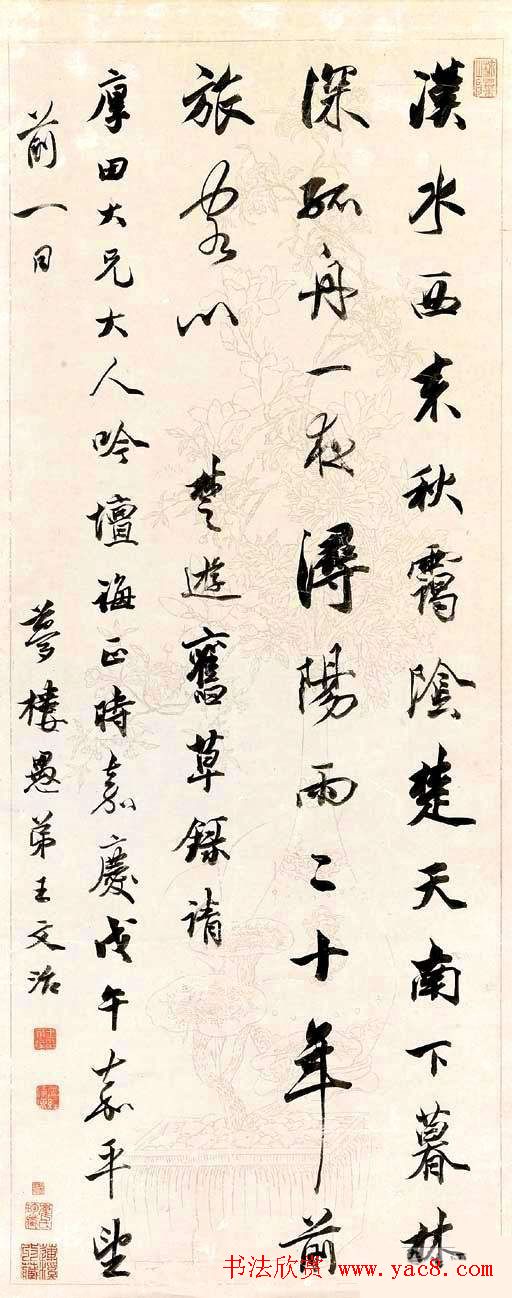 漢水西来秋靄陰楚天南下暮林
深孤舟一夜潯陽雨二十年前
旅客心 楚遊舊草錄請
厚田大兄大人吟壇誨正時嘉慶戊午嘉平望
前一日 夢樓愚弟王文治
书法欣赏 www.yac8.com